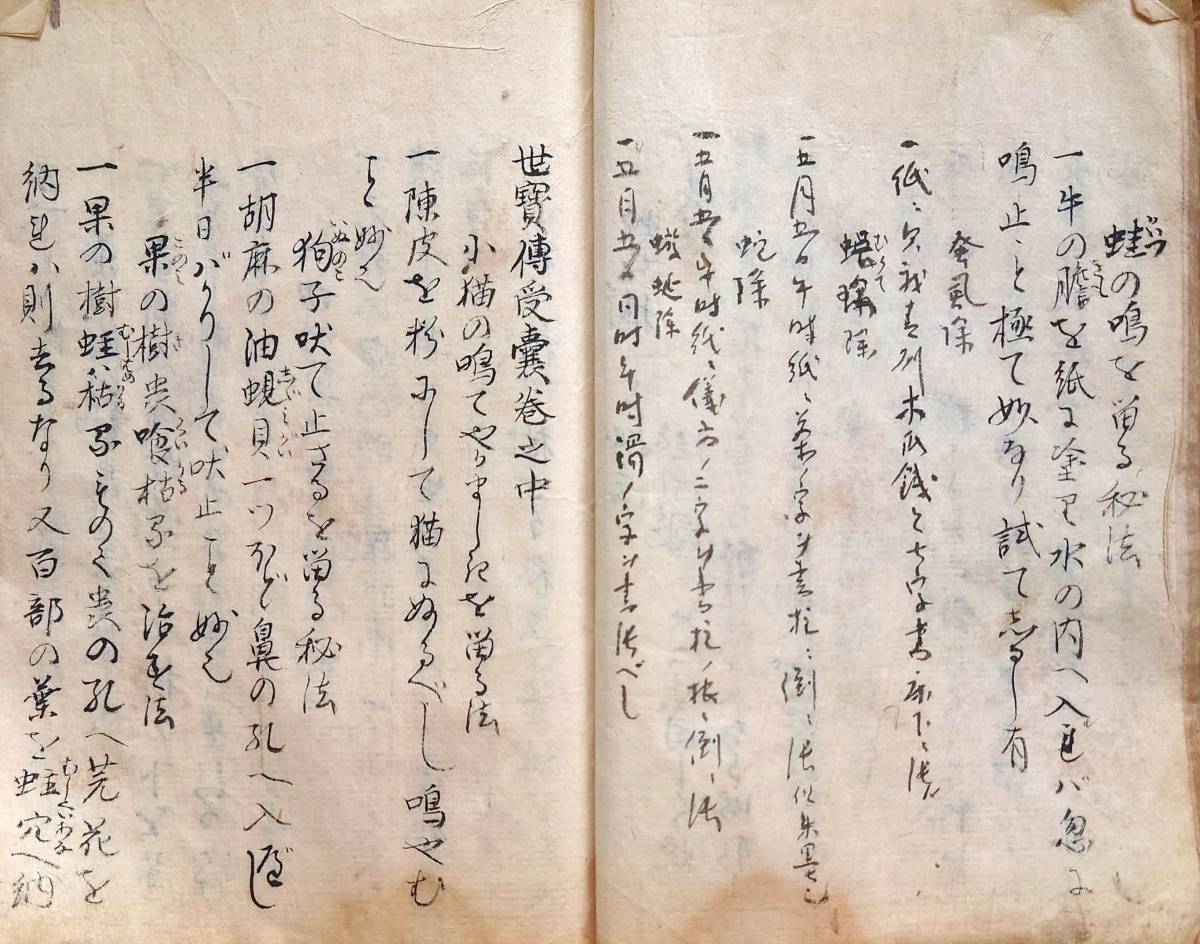 蛙の鳴を留る秘法
一牛の膽を紙に塗り水の内へ入レバ忽に
鳴止こと極て妙なり試てしるし有
風除
一紙ニ欠我青州木瓜銭と七字書床下ニ張
蜈除
一五月五日午時紙ニ茶ノ字ヲ書柱ニ倒ニ張
蛇除
一五月五日午時紙ニ儀方ノ二字ヲ書柱ノ根ニ倒ニ張
除
一五月五日同時午時滑ノ字ヲ書張べし
世寳傳受嚢巻之中
小猫の鳴てやかましきを留る法
一陳皮を粉にして猫にぬるべし鳴やむ
こと妙也
狗子吠て止ざるを留る秘法
一胡麻の油蜆貝一ツほど鼻の孔へ入べし
半日ばかりして吠止こと妙也
果の樹虫喰枯るを治す法
一果の樹蛀ハ枯るものく虫の孔へ芫花を
納れハ則去るなり又百部の葉を蛀穴へ納